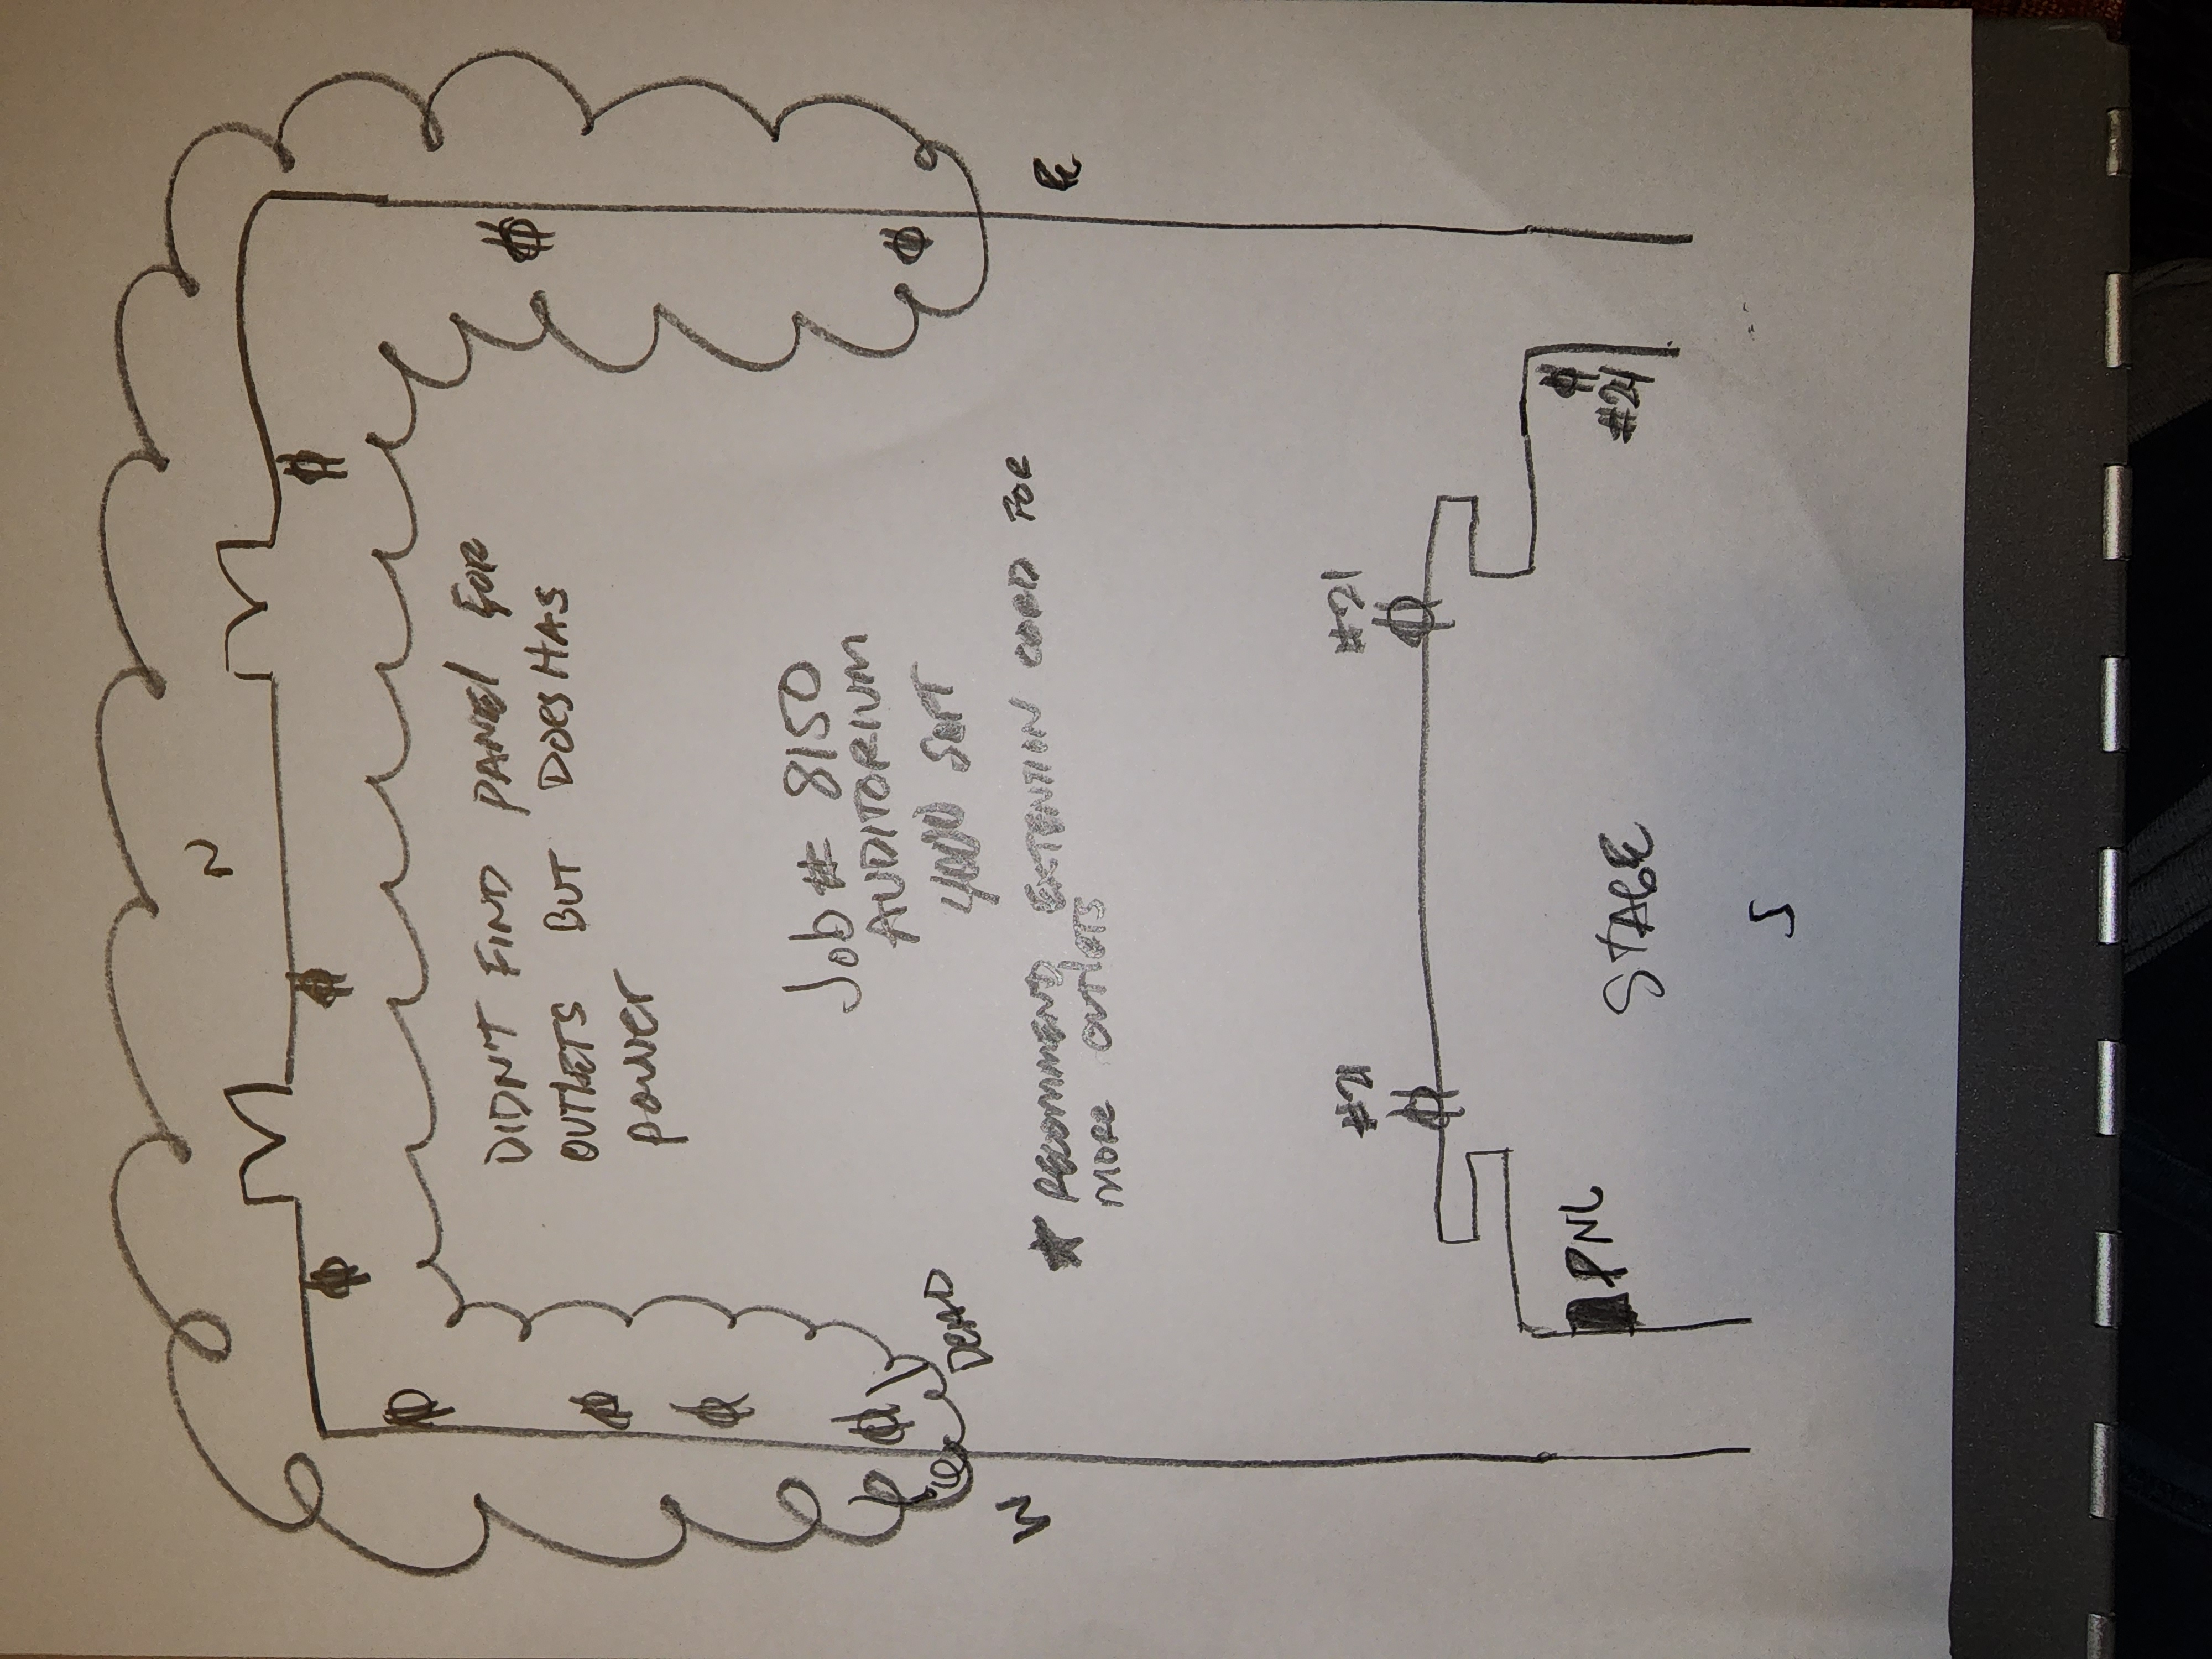 N
DIDNT FIND PANEl FOR
OUTlETS BUT DOES HAS
POWER
Job # 8150
AUDITORIUM
* RECOMMEND EXTENTIN CORD FOR
MORE OUTlETS
W
E
DEAD
#21
#21
PNL
#24
STAGE
S